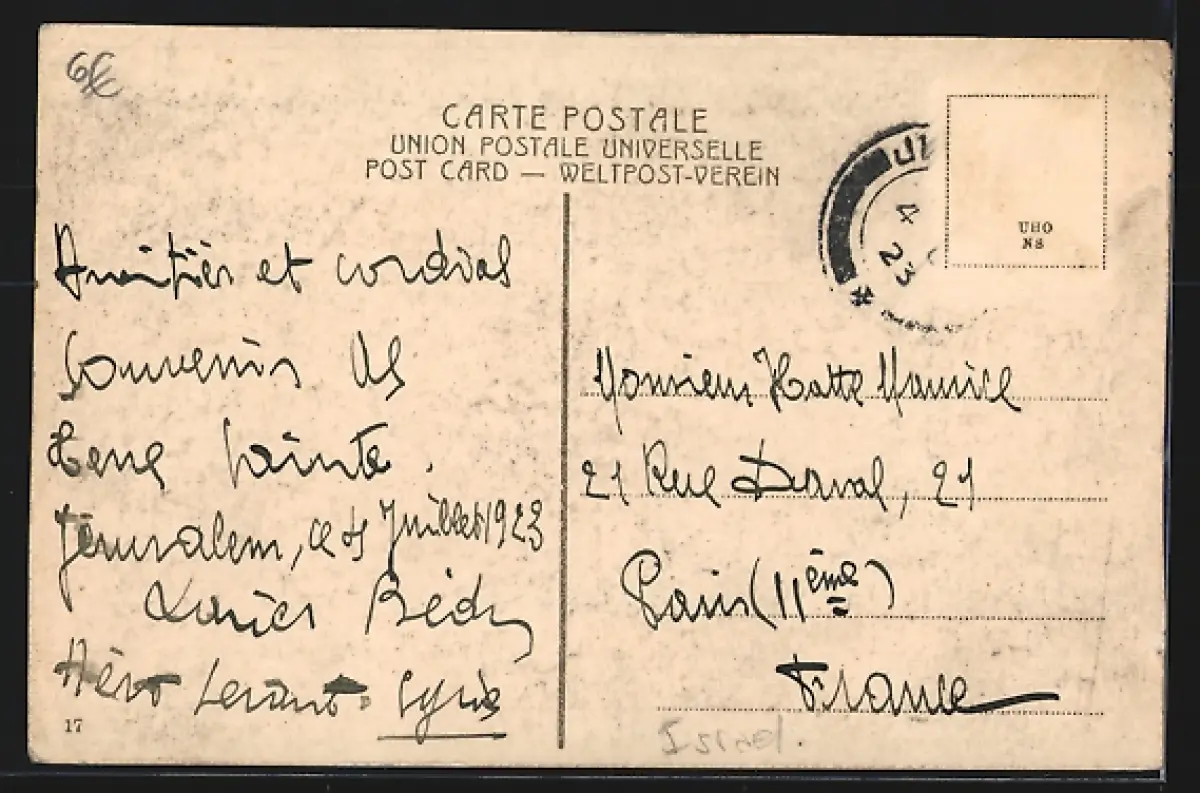 6€
CARTE POSTALE
UNION POSTALE UNIVERSELLE
POST CARD — WELTPOST-VEREIN
UHO
NS
4
23
Amitiés et cordial
Souvenirs de
Terre Sainte.
Jérusalem, le Juillet 1923
Xavier
Aéro Levant. Syrie
17
Monsieur Hatte Maurice
21 Rue Daval, 21
Paris (11ème)
France
Israel.